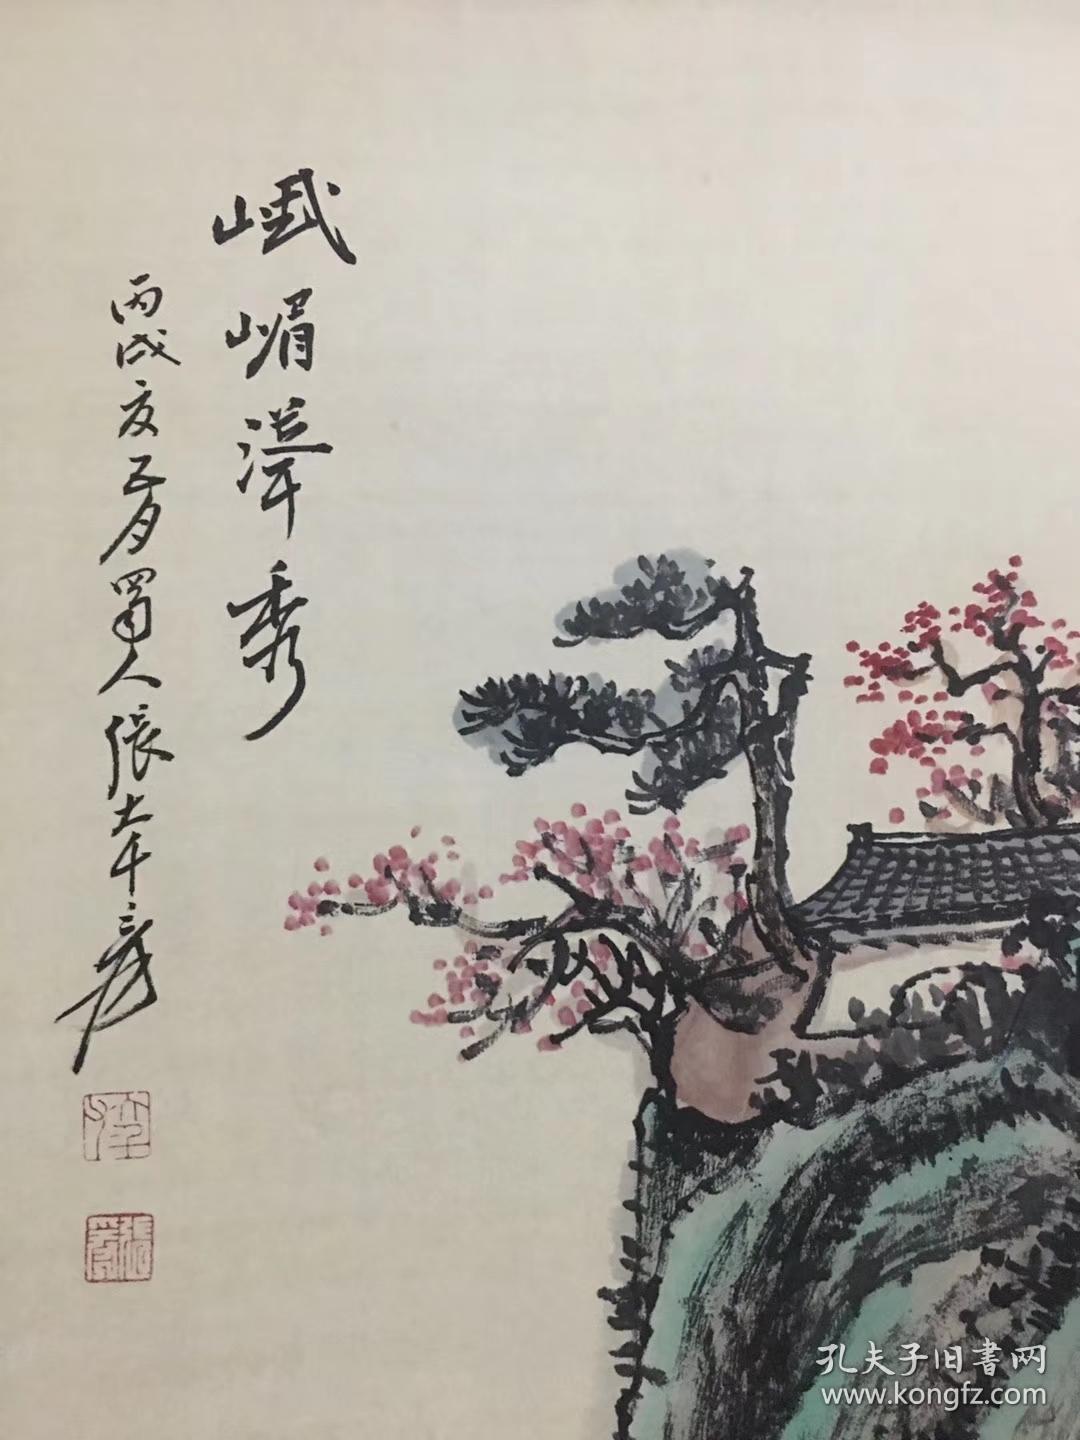 峨嵋泽秀
丙戌夏五月蜀人張大千爰
孔夫子旧書网
www.kongfz.com